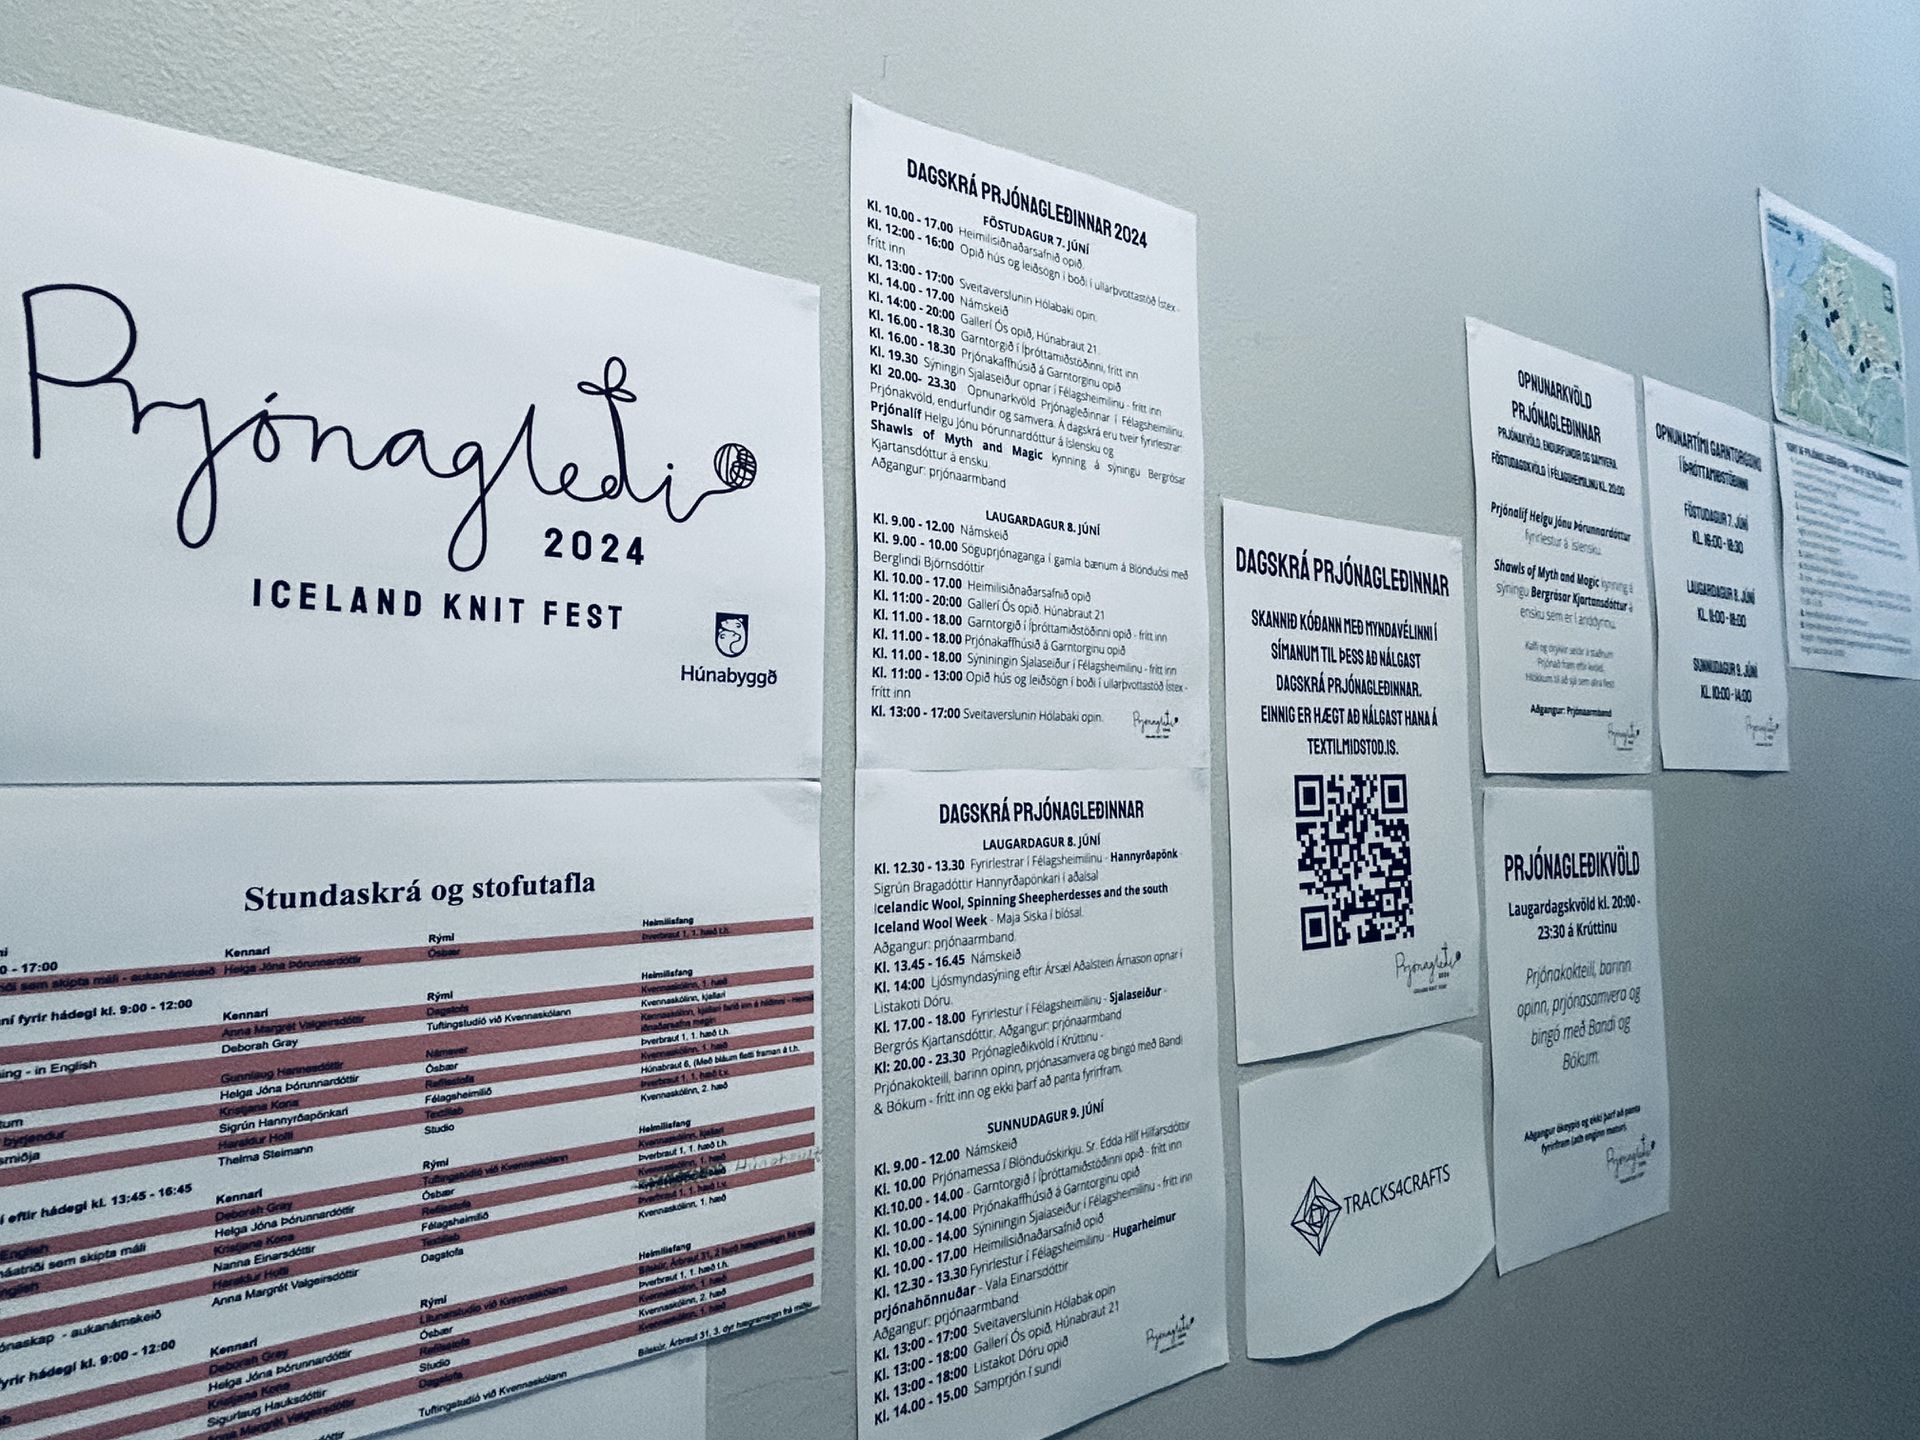 Prjónagleði
2024
ICELAND KNIT FEST
Húnabyggð
Stundaskrá og stofutafla
Kennari Rými Heimilisfang
0 - 17:00
Helga Jóna Þórunnardóttir Ósbær Þverbraut 1, 1. hæð t.h.
fyrir hádegi kl. 9:00 - 12:00 Kennari Rými Heimilisfang
Anna Margrét Valgeirsdóttir Dagstofa Kvennaskólinn, 1. hæð
Deborah Gray Tuftingstudíó við Kvennaskólann Kvennaskólinn, kjallari
ing - in English
Helga Jóna Þórunnardóttir Ósbær Þverbraut 1, 1. hæð t.h.
Kristjana Kona Refilsstofa Kvennaskólinn, 1. hæð
Sigrún Hannyrðapönkari Félagsheimilið
Haraldur Holti Textíllab Þverbraut 1, 1. hæð t.v.
Thelma Steimann Studio Kvennaskólinn, 2. hæð
eftir hádegi kl. 13:45 - 16:45 Kennari Rými Heimilisfang
Deborah Gray Tuftingstudíó við Kvennaskólann Kvennaskólinn, kjallari
Helga Jóna Þórunnardóttir Ósbær Þverbraut 1, 1. hæð t.h.
Kristjana Kona Refilsstofa
Nanna Einarsdóttir Félagsheimilið
Haraldur Holti Textíllab Þverbraut 1, 1. hæð t.v.
Anna Margrét Valgeirsdóttir Dagstofa Kvennaskólinn, 1. hæð
- aukanámskeið
fyrir hádegi kl. 9:00 - 12:00 Kennari Rými Heimilisfang
Deborah Gray
Helga Jóna Þórunnardóttir Ósbær Þverbraut 1, 1. hæð t.h.
Kristjana Kona Refilsstofa Kvennaskólinn, 1. hæð
Sigurlaug Hauksdóttir Studio Kvennaskólinn, 2. hæð
Anna Margrét Valgeirsdóttir Dagstofa Kvennaskólinn, 1. hæð
Tuftingstudíó við Kvennaskólann
DAGSKRÁ PRJÓNAGLEÐINNAR 2024
FÖSTUDAGUR 7. JÚNÍ
Kl. 10.00 - 17.00 Heimilisiðnaðarsafnið opið.
Kl. 12:00 - 16:00 Opið hús og leiðsögn í boði í ullarþvottastöð Ístex -
frítt inn
Kl. 13:00 - 17:00 Sveitaverslunin Hólabaki opin.
Kl. 14.00 - 17.00 Námskeið
Kl. 14:00 - 20:00 Gallerí Ós opið, Húnabraut 21.
Kl. 16.00 - 18.30 Garntorgið í Íþróttamiðstöðinni, frítt inn
Kl. 16.00 - 18.30 Prjónakaffhúsið á Garntorginu opið
Kl. 19.30 Sýningin Sjalaseiður opnar í Félagsheimilinu - frítt inn
Kl 20.00- 23.30 Opnunarkvöld Prjónagleðinnar í Félagsheimilinu.
Prjónakvöld, endurfundir og samvera. Á dagskrá eru tveir fyrirlestrar:
Prjónalíf Helgu Jónu Þórunnardóttur á íslensku og
Shawls of Myth and Magic kynning á sýningu Bergrósar
Kjartansdóttur á ensku.
Aðgangur: prjónaarmband
LAUGARDAGUR 8. JÚNÍ
Kl. 9.00 - 12.00 Námskeið
Kl. 9.00 - 10.00 Söguprjónaganga í gamla bænum á Blönduósi með
Berglindi Björnsdóttir
Kl. 10.00 - 17.00 Heimilisiðnaðarsafnið opið
Kl. 11:00 - 20:00 Gallerí Ós opið. Húnabraut 21
Kl. 11.00 - 18.00 Garntorgið í Íþróttamiðstöðinni opið - frítt inn
Kl. 11.00 - 18.00 Prjónakaffhúsið á Garntorginu opið
Kl. 11.00 - 18.00 Sýniningin Sjalaseiður í Félagsheimilinu - frítt inn
Kl. 11:00 - 13:00 Opið hús og leiðsögn í boði í ullarþvottastöð Ístex -
frítt inn
Kl. 13:00 - 17:00 Sveitaverslunin Hólabaki opin.
Prjónagleði
DAGSKRÁ PRJÓNAGLEÐINNAR
LAUGARDAGUR 8. JÚNÍ
Kl. 12.30 - 13.30 Fyrirlestrar í Félagsheimilinu - Hannyrðapönk -
Sigrún Bragadóttir Hannyrðapönkari í aðalsal
Icelandic Wool, Spinning Sheepherdesses and the south
Iceland Wool Week - Maja Siska í bíósal.
Aðgangur: prjónaarmband.
Kl. 13.45 - 16.45 Námskeið
Kl. 14:00 Ljósmyndasýning eftir Ársæl Aðalstein Árnason opnar í
Listakoti Dóru.
Kl. 17.00 - 18.00 Fyrirlestur í Félagsheimilinu - Sjalaseiður -
Bergrós Kjartansdóttir. Aðgangur: prjónaarmband
Kl: 20.00 - 23.30 Prjónagleðikvöld í Krúttinu -
Prjónakokteill, barinn opinn, prjónasamvera og bingó með Bandi
& Bókum - frítt inn og ekki þarf að panta fyrirfram.
SUNNUDAGUR 9. JÚNÍ
Kl. 9.00 - 12.00 Námskeið
Kl. 10.00 Prjónamessa í Blönduóskirkju. Sr. Edda Hlíf Hlífarsdóttir
Kl.10.00 - 14.00 - Garntorgið í Íþróttamiðstöðinni opið - frítt inn
Kl. 10.00 - 14.00 Prjónakaffhúsið á Garntorginu opið
Kl. 10.00 - 14.00 Sýniningin Sjalaseiður í Félagsheimilinu - frítt inn
Kl. 10.00 - 17.00 Heimilisiðnaðarsafnið opið
Kl. 12.30 - 13.30 Fyrirlestur í Félagsheimilinu - Hugarheimur
prjónahönnuðar - Vala Einarsdóttir
Aðgangur: prjónaarmband
Kl. 13:00 - 17:00 Sveitaverslunin Hólabak opin
Kl. 13:00 - 18:00 Gallerí Ós opið, Húnabraut 21
Kl. 13:00 - 18:00 Listakot Dóru opið
Kl. 14.00 - 15.00 Samprjón í sundi
Prjónagleði
DAGSKRÁ PRJÓNAGLEÐINNAR
SKANNIÐ KÓÐANN MEÐ MYNDAVÉLINNI Í
SÍMANUM TIL ÞESS AÐ NÁLGAST
DAGSKRÁ PRJÓNAGLEÐINNAR.
EINNIG ER HÆGT AÐ NÁLGAST HANA Á
TEXTILMIDSTOD.IS.
Prjónagleði
2024
ICELAND KNIT FEST
TRACKS4CRAFTS
OPNUNARKVÖLD
PRJÓNAGLEÐINNAR
PRJÓNAKVÖLD, ENDURFUNDIR OG SAMVERA.
FÖSTUDAGSKVÖLD Í FÉLAGSHEIMILINU KL. 20:00
Prjónalíf Helgu Jónu Þórunnardóttur
fyrirlestur á íslensku.
Shawls of Myth and Magic kynning á
sýningu Bergrósar Kjartansdóttur á
ensku sem er í anddyrinu.
Kaffi og drykkir seldir á staðnum
Prjónað fram eftir kvöldi.
Hlökkum til að sjá sem allra flest
Aðgangur: Prjónaarmband
Prjónagleði
PRJÓNAGLEÐIKVÖLD
Laugardagskvöld kl. 20:00 -
23:30 á Krúttinu
Prjónakokteill, barinn
opinn, prjónasamvera og
bingó með Bandi og
Bókum.
Aðgangur ókeypis og ekki þarf að panta
fyrirfram (ath enginn matur).
Prjónagleði
OPNUNARTÍMI GARNTORGSINS
Í ÍÞRÓTTAMIÐSTÖÐINNI
FÖSTUDAGUR 7. JÚNÍ
KL. 16:00 - 18:30
LAUGARDAGUR 8. JÚNÍ
KL. 11:00 - 18:00
SUNNUDAGUR 9. JÚNÍ
KL. 10:00 - 14:00
Prjónagleði